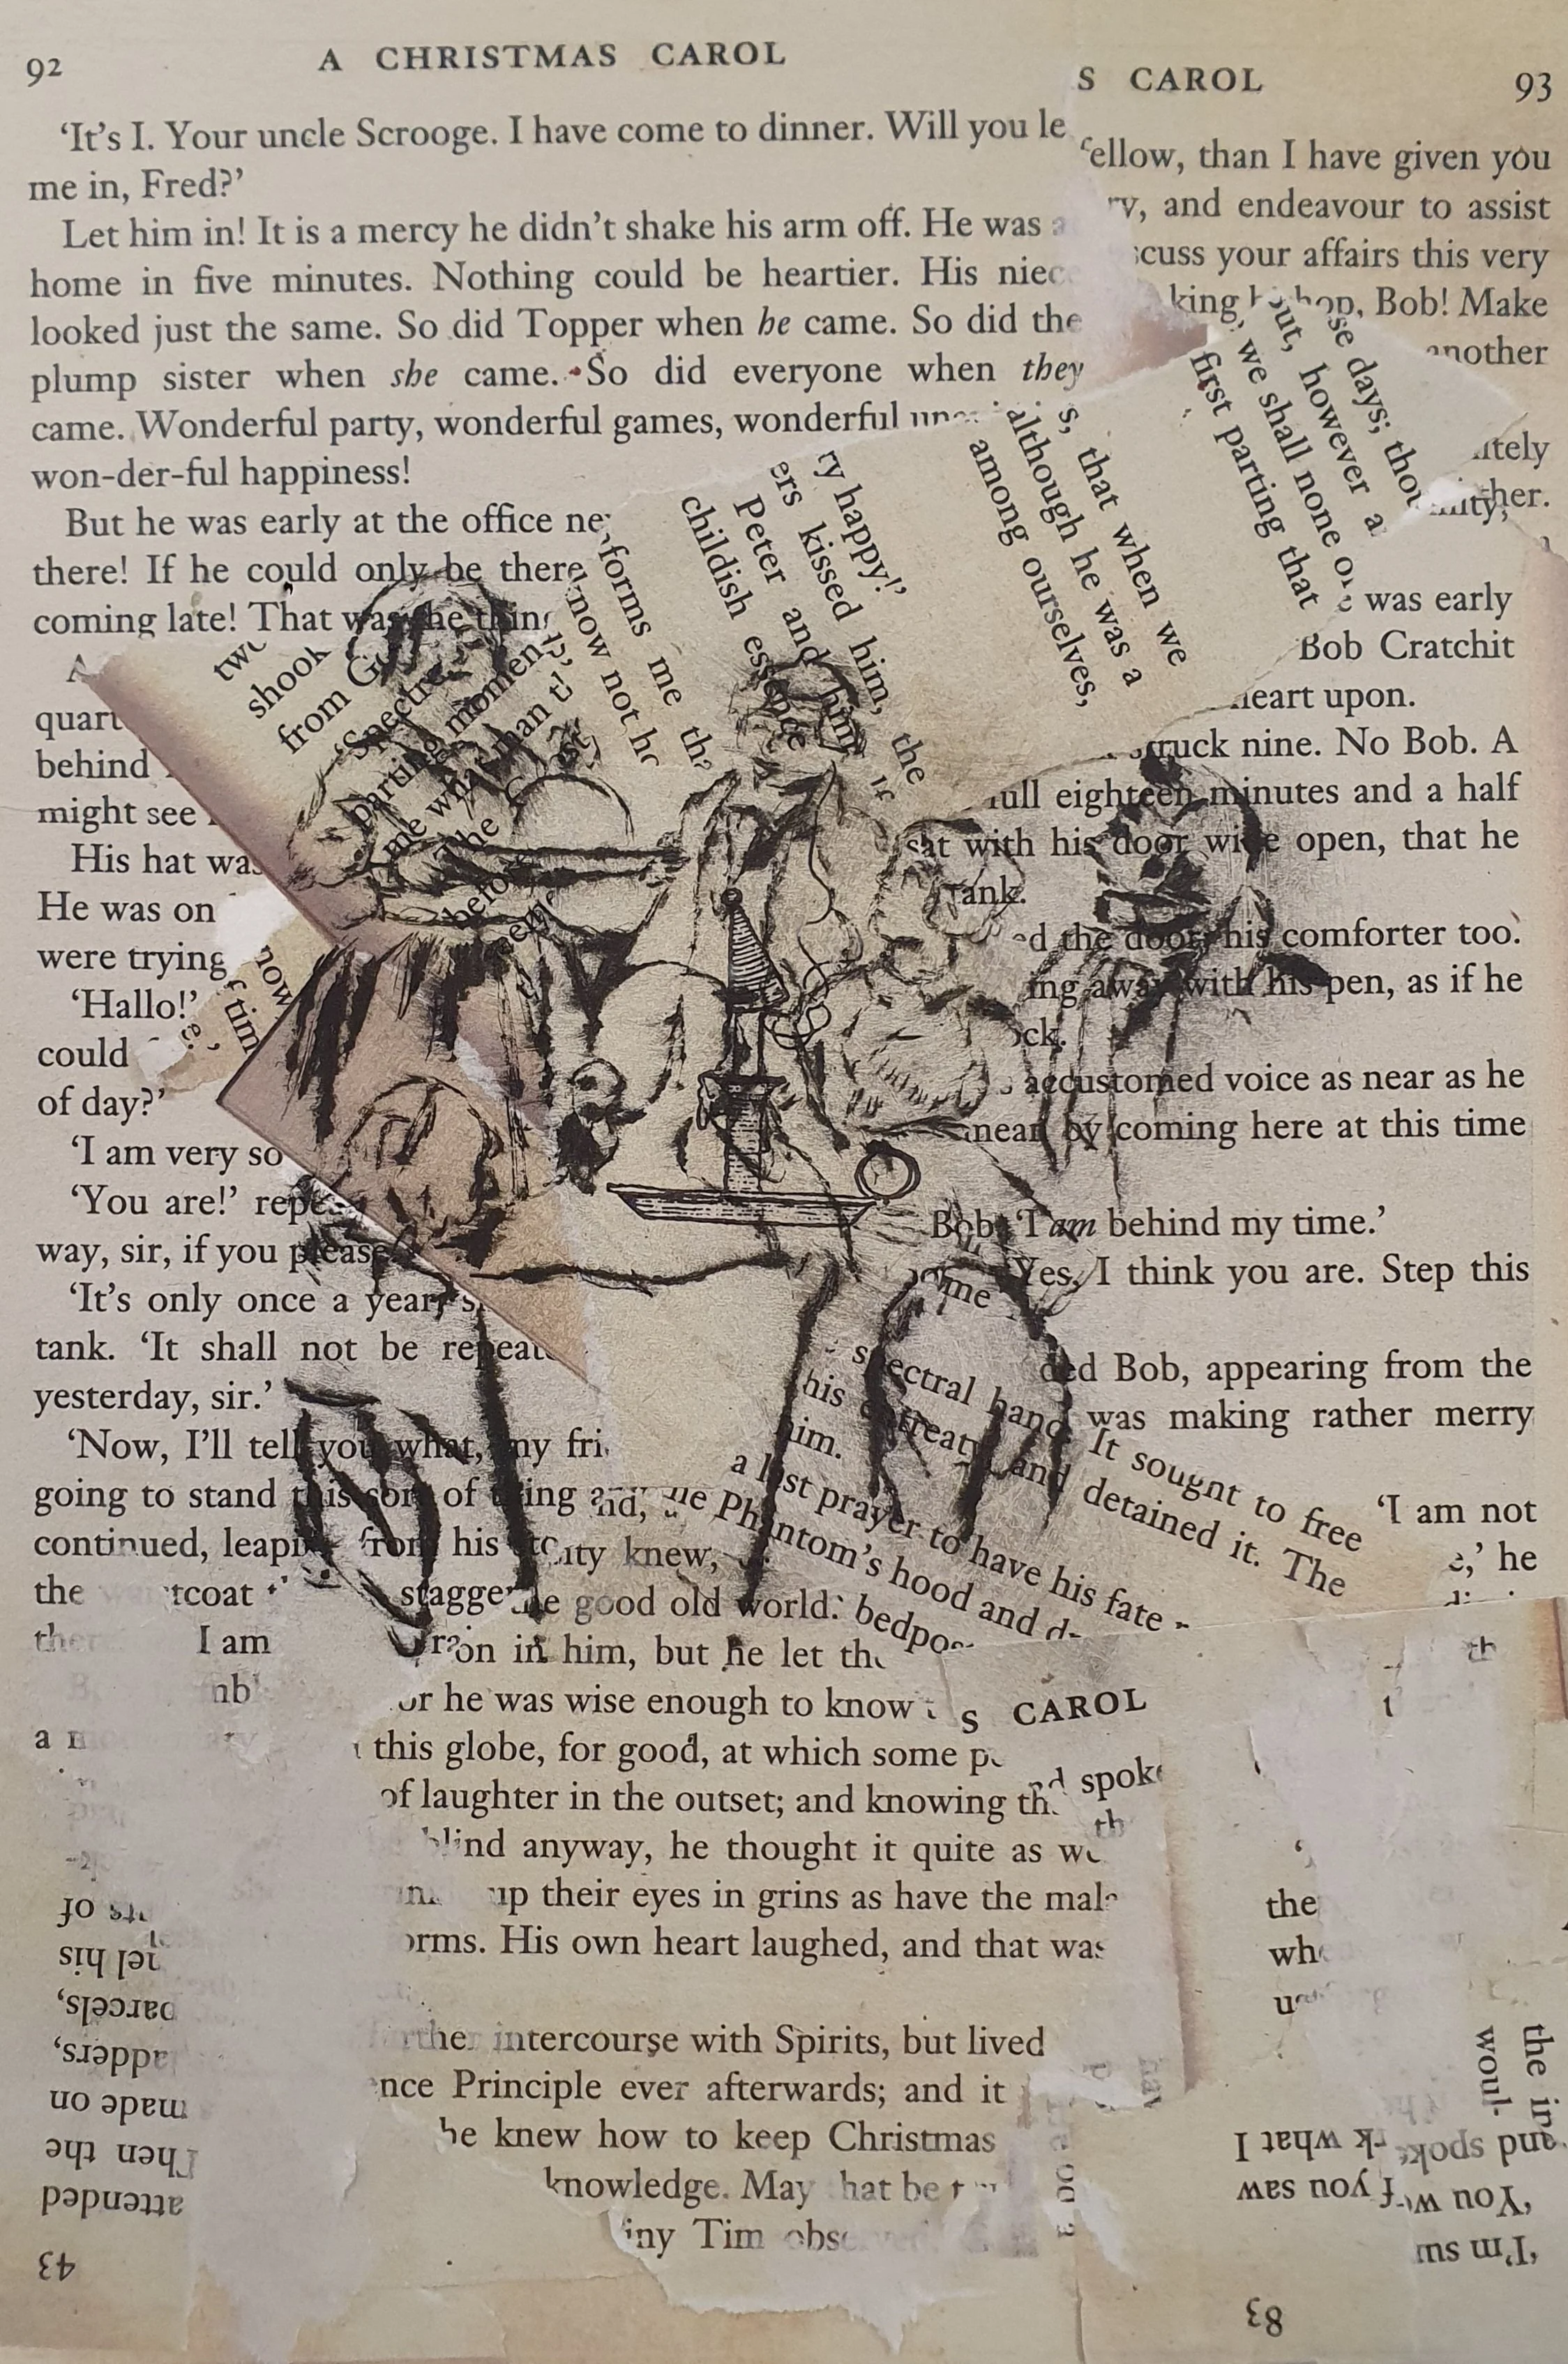 92
A CHRISTMAS CAROL
‘It’s I. Your uncle Scrooge. I have come to dinner. Will you le
me in, Fred?’
Let him in! It is a mercy he didn’t shake his arm off. He was
home in five minutes. Nothing could be heartier. His niec
looked just the same. So did Topper when he came. So did the
plump sister when she came. So did everyone when they
came. Wonderful party, wonderful games, wonderful
won-der-ful happiness!
But he was early at the office ne
there! If he could only be there
coming late! That was the thing
A
quart
behind
might see
His hat was
He was on
were trying
‘Hallo!’
could
of day?’
‘I am very so
‘You are!’ repea
way, sir, if you please
‘It’s only once a year, s
tank. ‘It shall not be repeate
yesterday, sir.’
‘Now, I’ll tell you what, my fri
going to stand this sort of thing
continued, leaping from his
the tcoat stagge
I am
a
S CAROL
93
fellow, than I have given you
ry, and endeavour to assist
scuss your affairs this very
king bishop, Bob! Make
another
itely
ther.
was early
Bob Cratchit
heart upon.
struck nine. No Bob. A
full eighteen minutes and a half
sat with his door wide open, that he
tank.
ed the door, his comforter too.
ing away with his pen, as if he
ock.
accustomed voice as near as he
mean by coming here at this time
Bob. ‘I am behind my time.’
Yes, I think you are. Step this
ded Bob, appearing from the
was making rather merry
‘I am not
e,’ he
two
shook
from G
‘Spectre
parting momen
me what man t
the Ghost
before
now
f tim
e.’
forms me tha
know not ho
ty happy!’
ers kissed him, the
Peter and him
childish essence
s, that when we
although he was a
among ourselves,
se days; thou
ut, however a
we shall none o
first parting that
ome
spectral hand. It sought to free
his entreaty, and detained it. The
him.
a last prayer to have his fate
he Phantom’s hood and d
bedpos
city knew,
the good old world.
on in him, but he let the
or he was wise enough to know
this globe, for good, at which some p
of laughter in the outset; and knowing th
blind anyway, he thought it quite as we
up their eyes in grins as have the mal
orms. His own heart laughed, and that was
rther intercourse with Spirits, but lived
nce Principle ever afterwards; and it
he knew how to keep Christmas
knowledge. May that be
iny Tim obs
S CAROL
nd spoke
th
th
t
the
wh
the in
woul
attended
Then the
made on
adders,
parcels,
nel his
ts of
43
‘I’m su
‘You w f you saw
and spoke rk what I
83